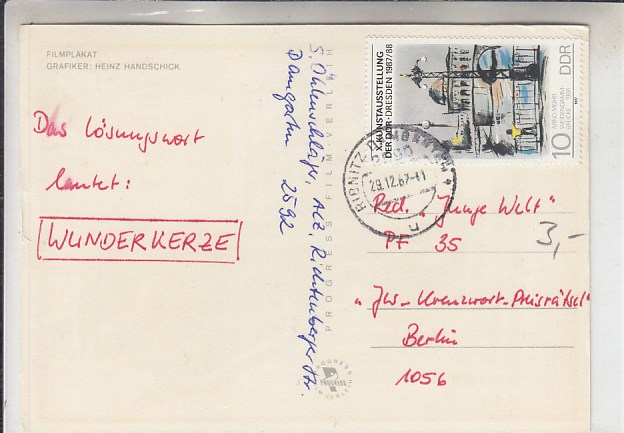 FILMPLAKAT
GRAFIKER: HEINZ HANDSCHICK
Das Lösungswort
lautet:
WUNDERKERZE
S.
Damgarten 2592
PROGRESS FILMVERLEIH
X. KUNSTAUSSTELLUNG
DER DDR · DRESDEN 1987/88
ARNO MOHR
WEIDENDAMM-
BRÜCKE 1986
10 DDR
RIBNITZ-DAMGARTEN
2590
29.12.87-11
n
Red. „Junge Welt"
PF 35
3,-
„JW-Kreuzwort-Preisrätsel"
Berlin
1056
PROGRESS